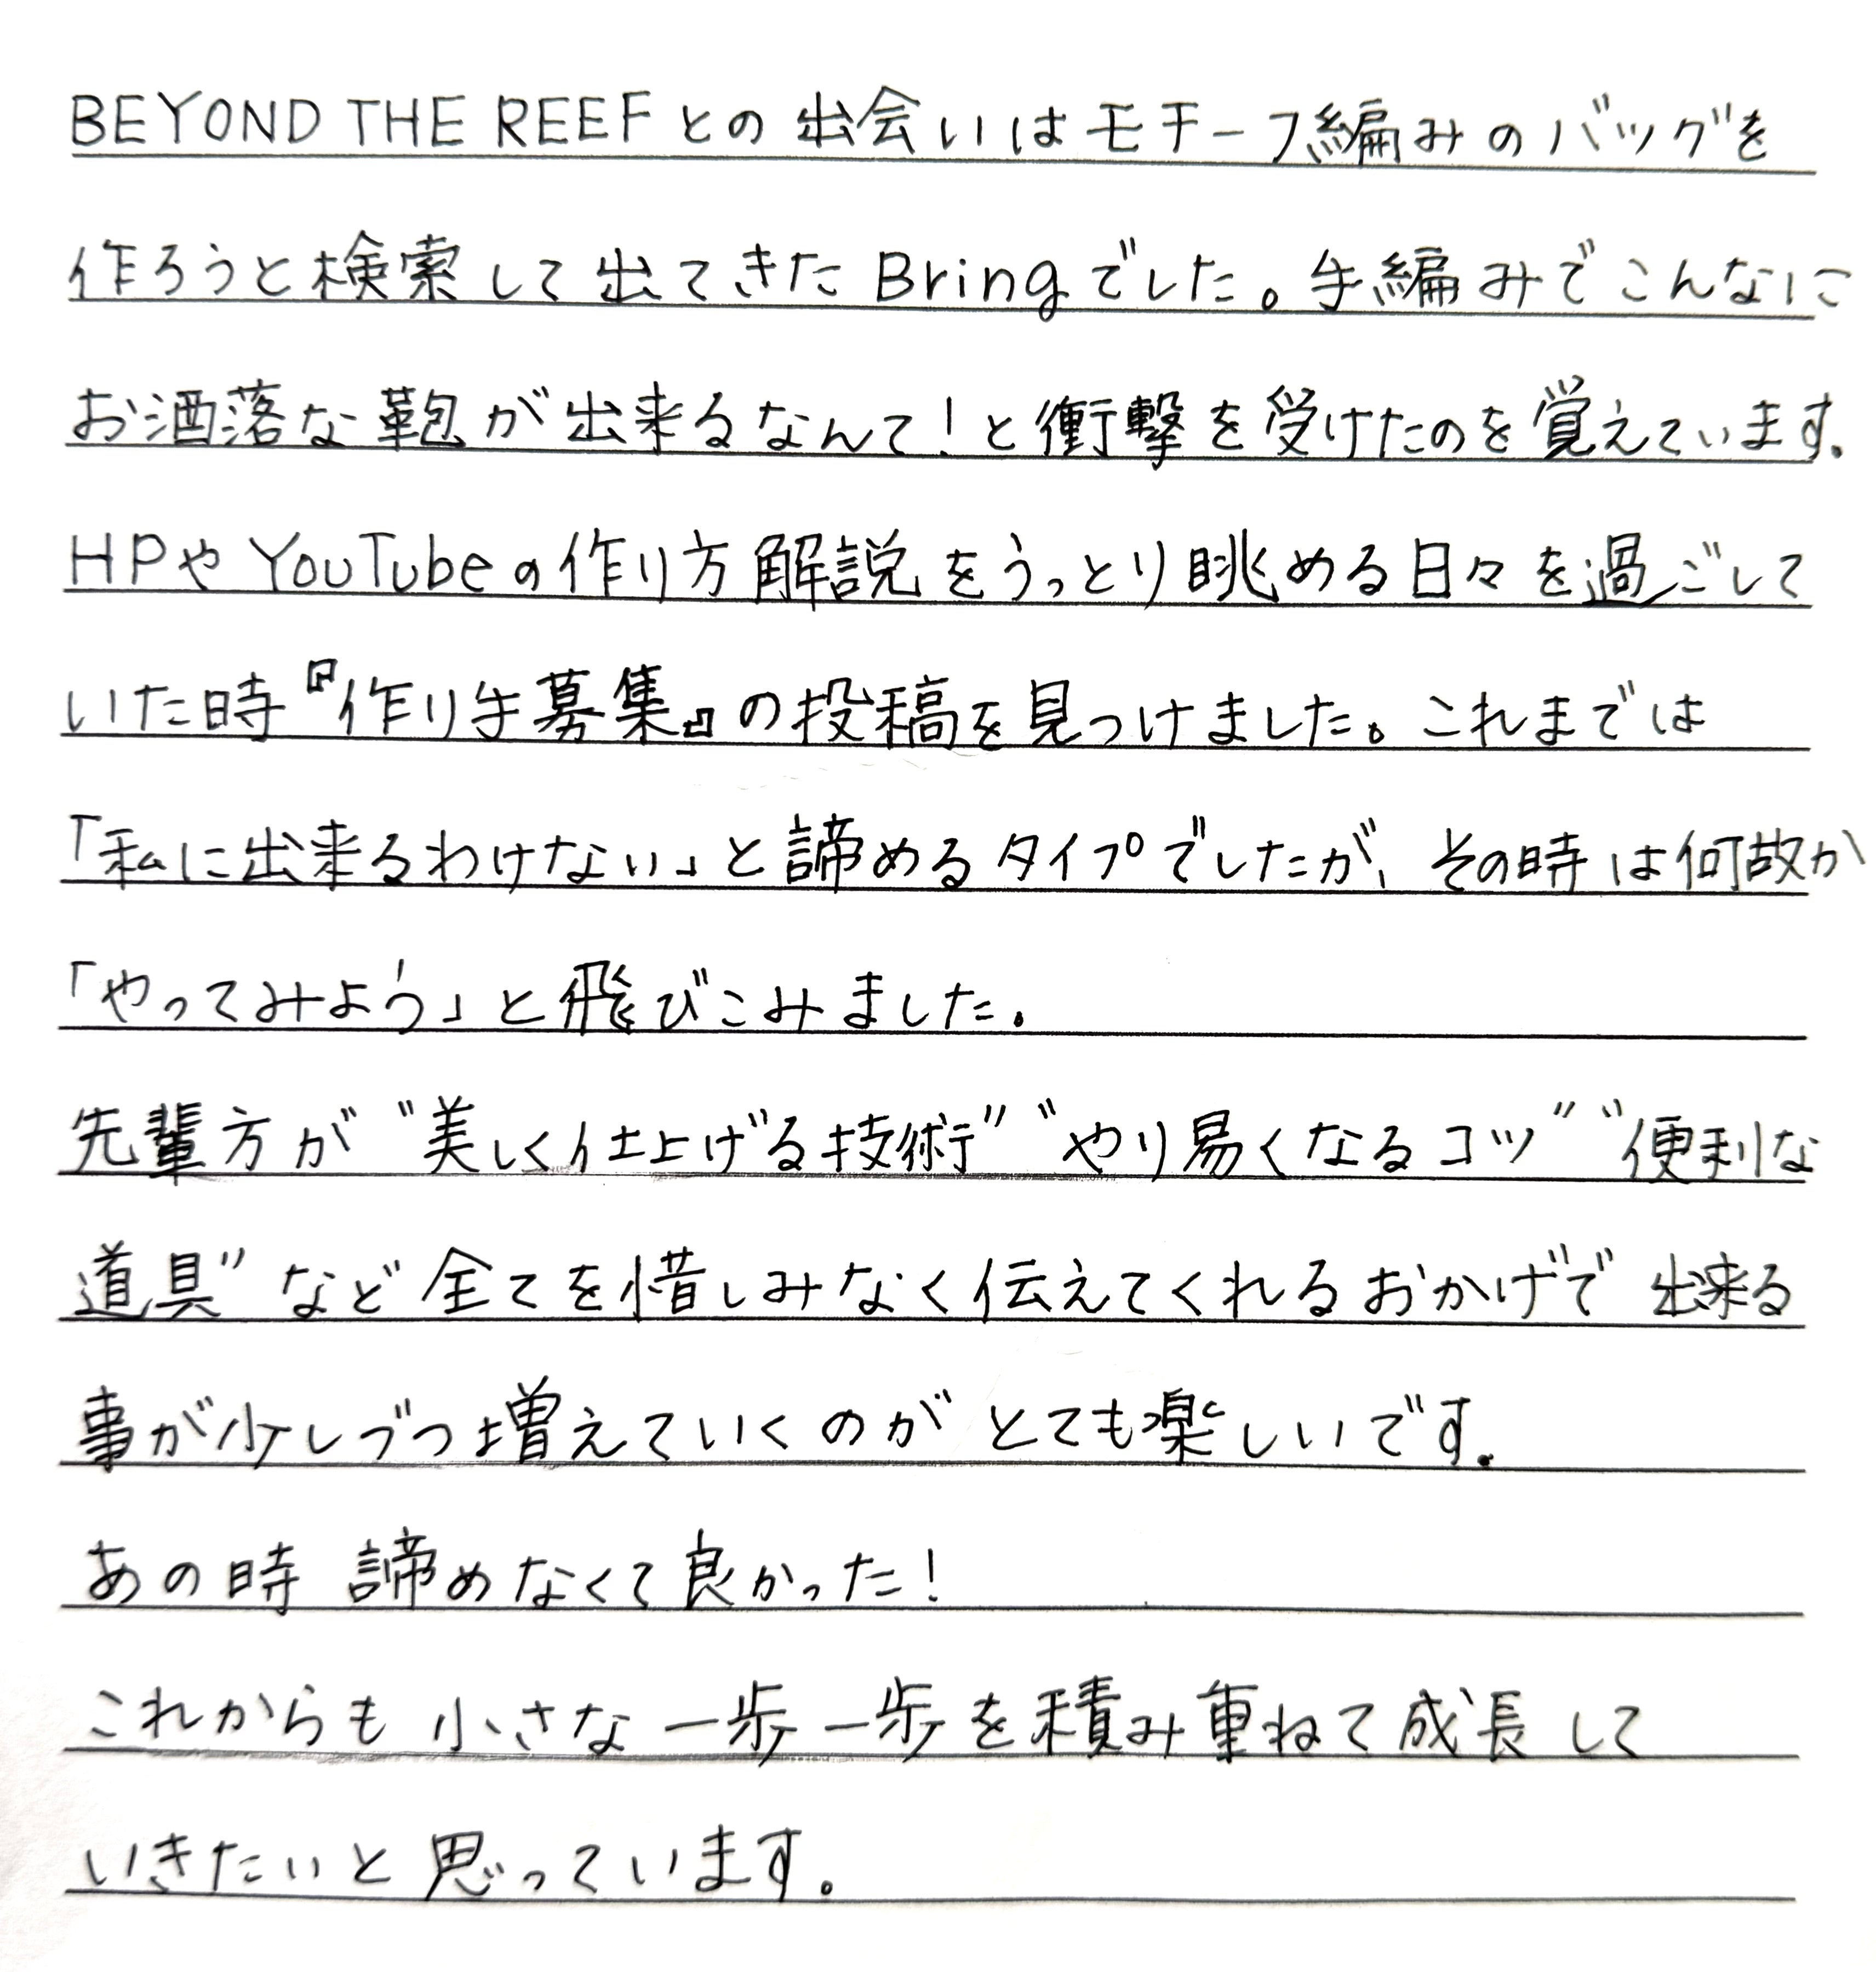 BEYOND THE REEFとの出会いはモチーフ編みのバッグを
作ろうと検索して出てきたBringでした。手編みでこんなに
お洒落な鞄が出来るなんて!と衝撃を受けたのを覚えています。
HPやYouTubeの作り方解説をうっとり眺める日々を過ごして
いた時『作り手募集』の投稿を見つけました。これまでは
「私に出来るわけない」と諦めるタイプでしたが、その時は何故か
「やってみよう」と飛びこみました。
先輩方が“美しく仕上げる技術”“やり易くなるコツ”“便利な
道具”など全てを惜しみなく伝えてくれるおかげで出来る
事が少しづつ増えていくのがとても楽しいです。
あの時 諦めなくて良かった!
これからも小さな一歩一歩を積み重ねて成長して
いきたいと思っています。